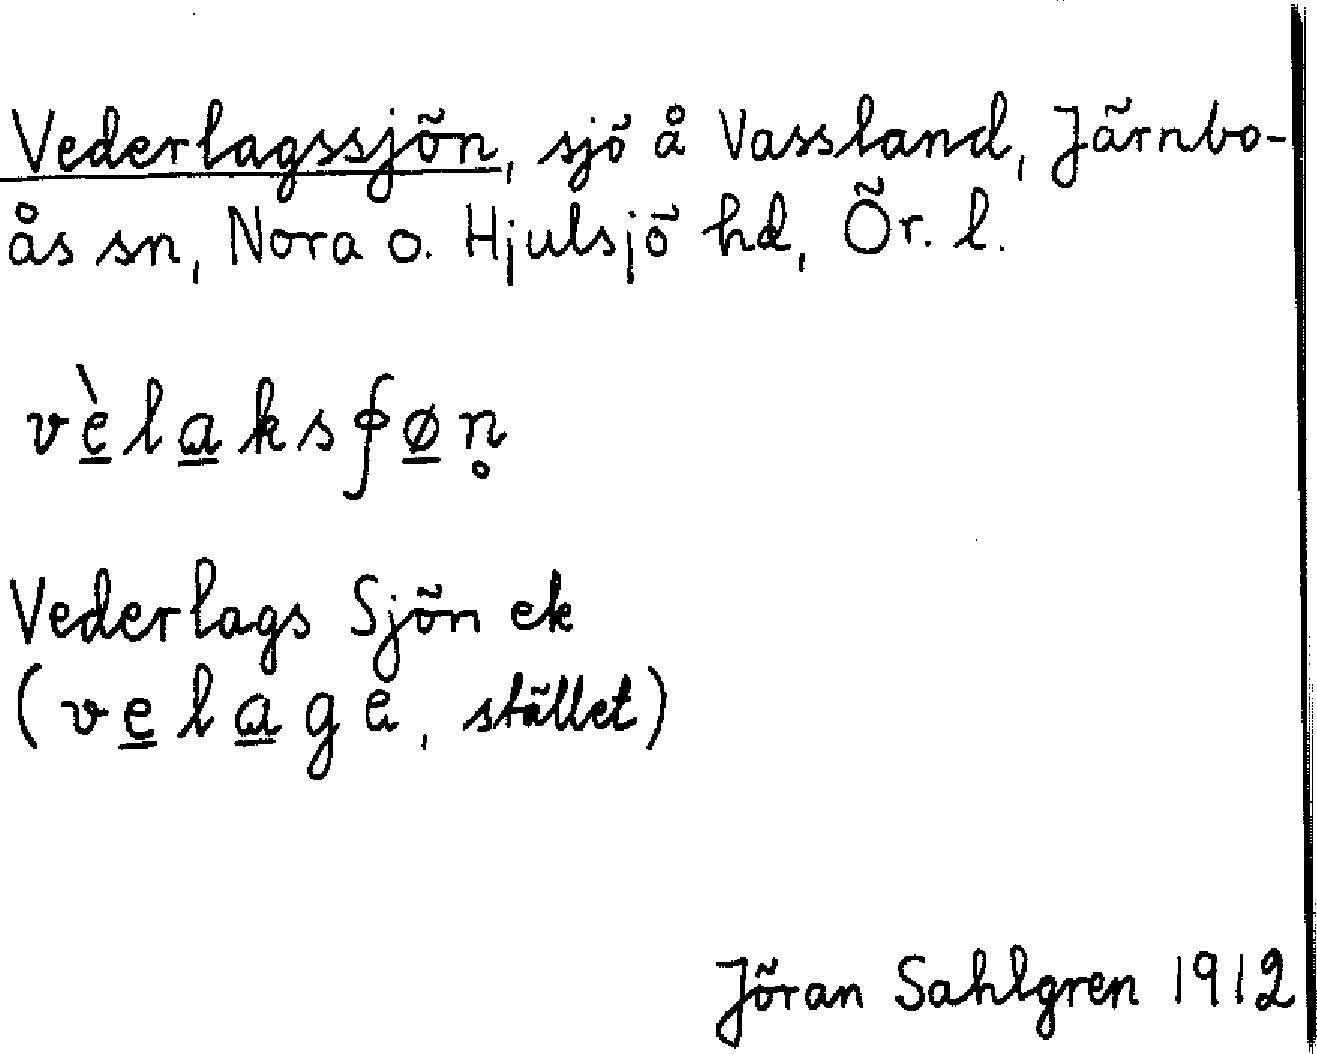 Vederlagssjön, sjö å Vassland, Järnbo-
ås sn, Nora o. Hjulsjö hd, Ör. l.
vè̲la̲ksʄø̲n̥
Vederlags Sjön ek
(ve̲la̲ge, stället)
Jöran Sahlgren 1912